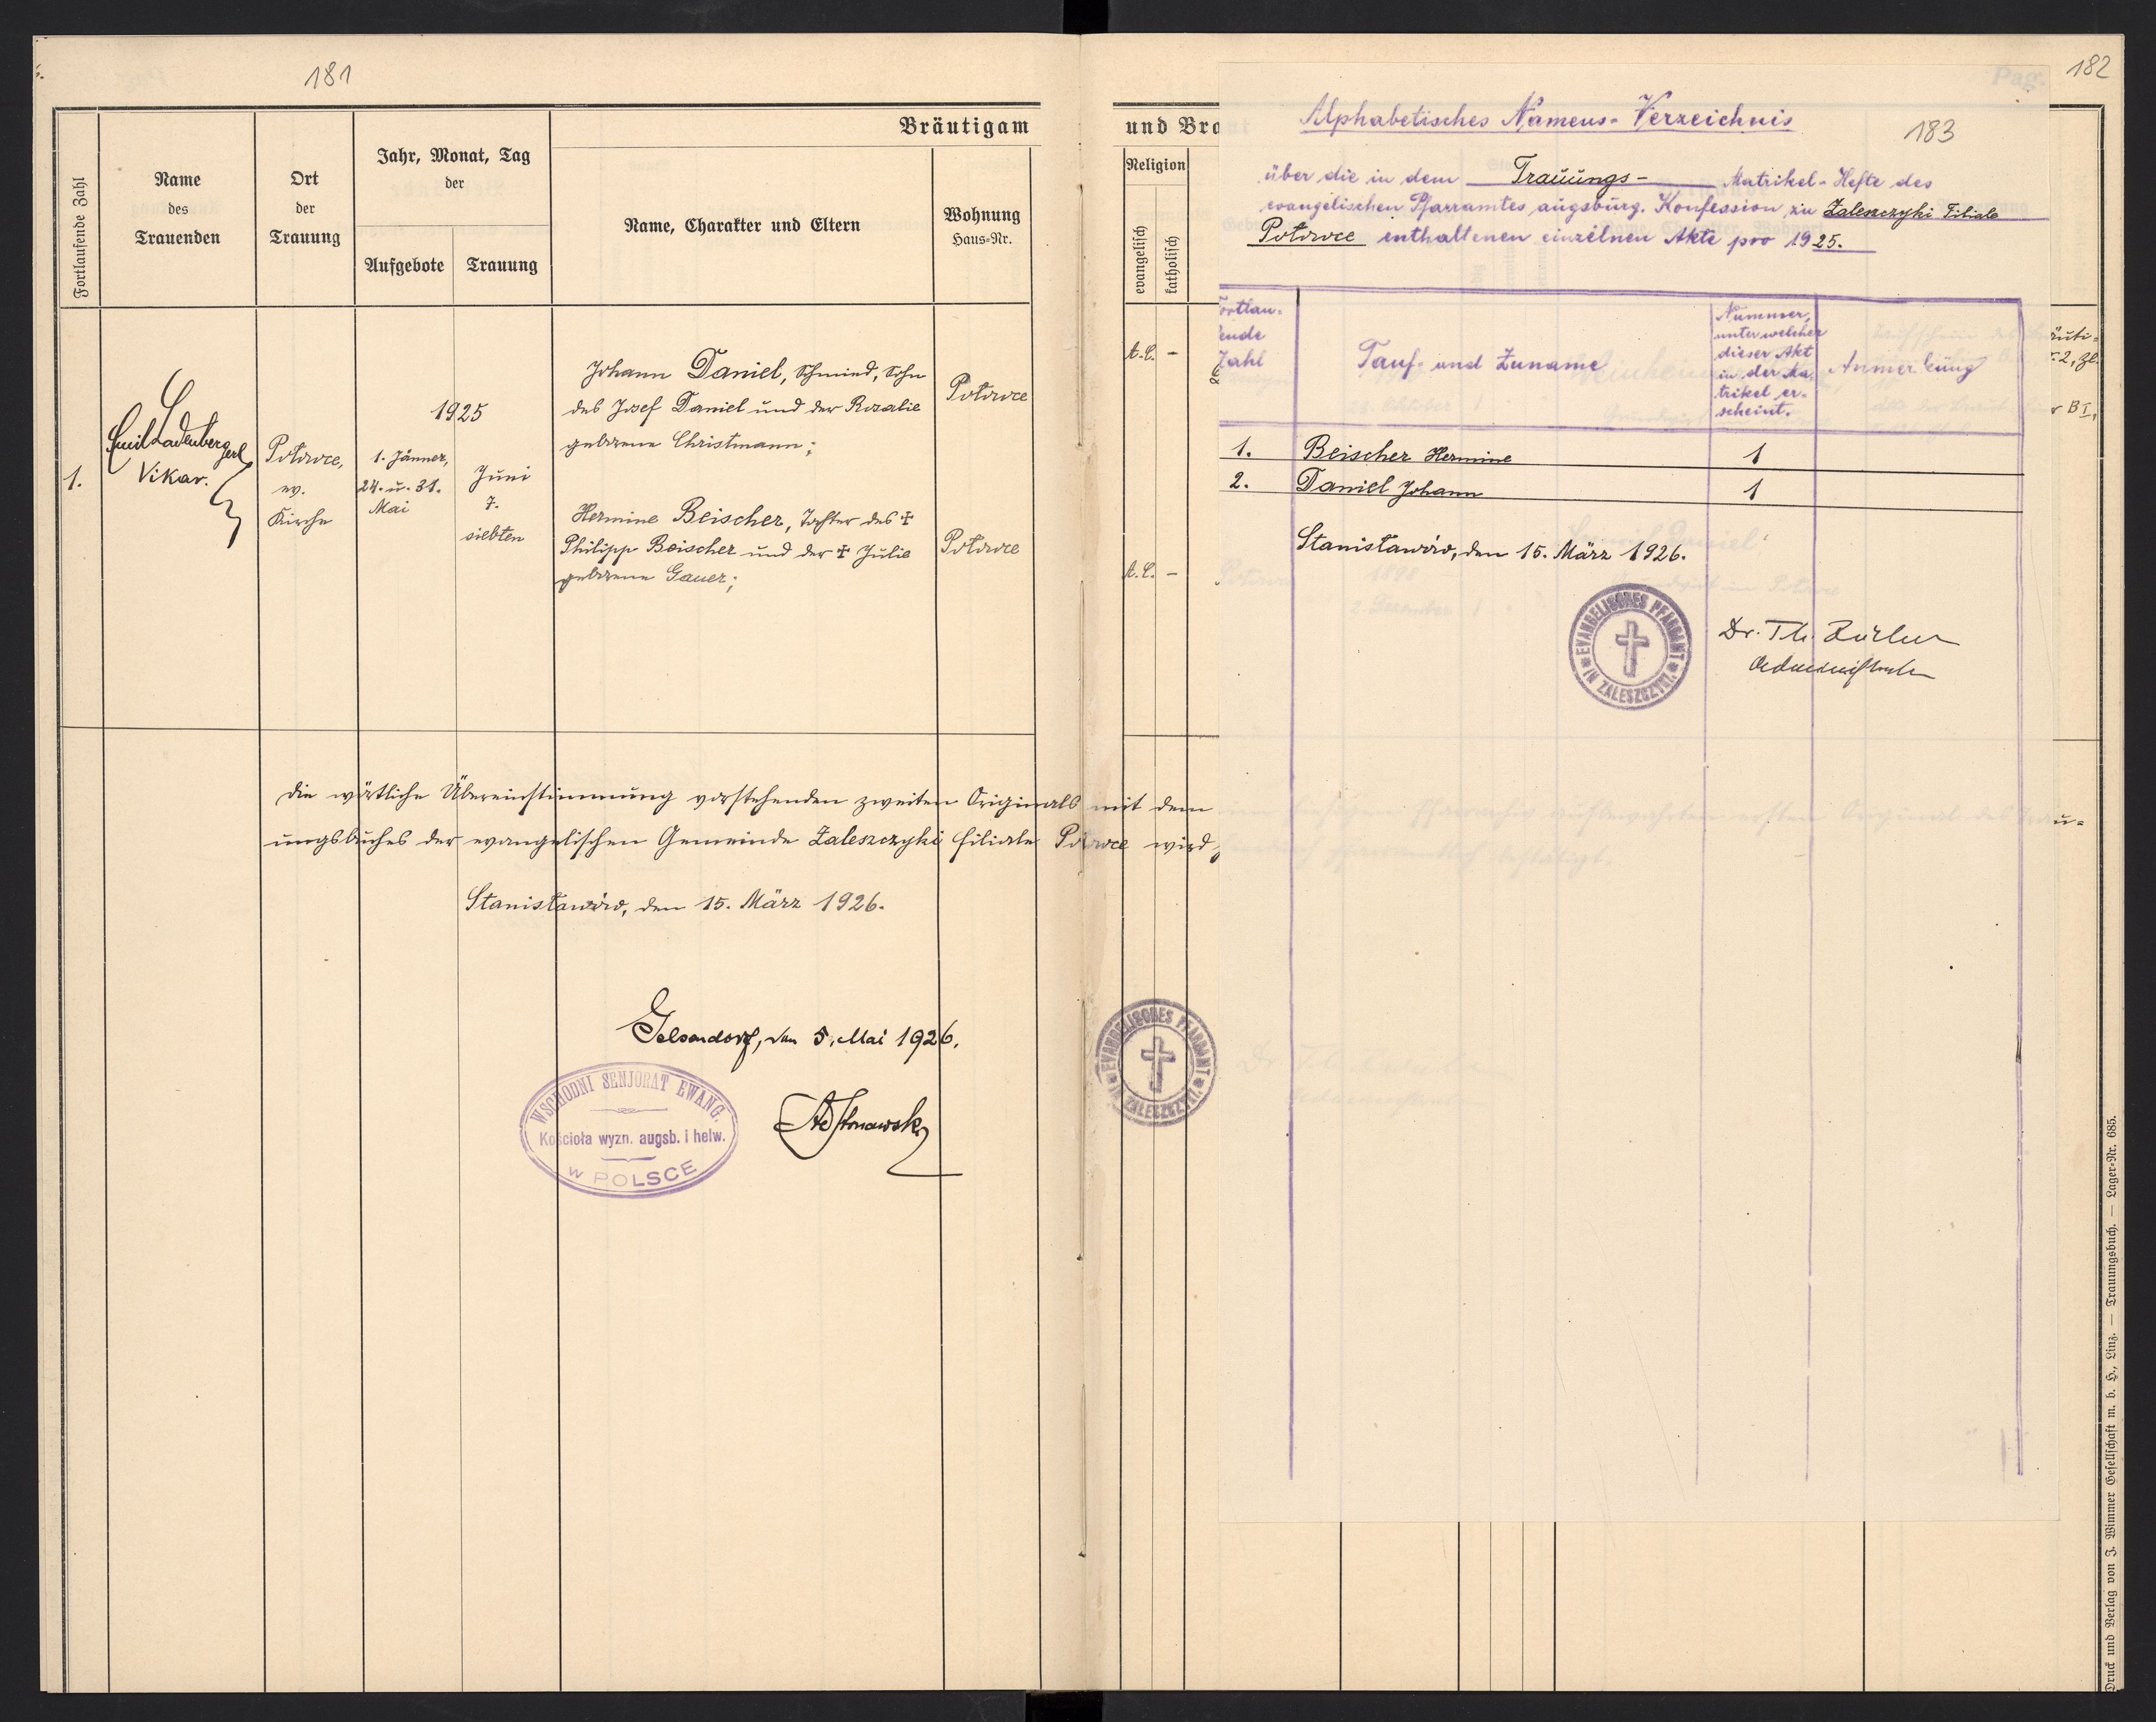 181
Bräutigam
Fortlaufende Zahl
Name
des
Trauenden
Ort
der
Trauung
Jahr, Monat, Tag
der
Aufgebote
Trauung
Name, Charakter und Eltern
Wohnung
Haus=Nr.
1.
Emil Ladenberger
Vikar.
Potoroce,
ev.
Kirche
1925
1. Jänner,
24. u. 31.
Mai
Juni
7.
siebten
Johann Daniel, Schmied, Sohn
des Josef Daniel und der Rozalie
geborene Christmann;
Potoroce
Hermine Beischer, Tochter des ✝
Philipp Beischer und der ✝ Julie
geborene Gauer;
Potoroce
die wörtliche Übereinstimmung vorstehenden zweiten Originals mit dem
ungsbuches der evangelischen Gemeinde Zaleszczyki filiale Potoroce wird
Stanisławów, den 15. März 1926.
Gelsendorf, den 5. Mai 1926.
WSCHODNI SENJORAT EWANG.
Kościoła wyzn. augsb. i helw.
w POLSCE
182
Pag.
und Bra
Religion
evangelisch
katholisch
A.C. -
A.C. -
EVANGELISCHES PFARRAMT
IN ZALESZCZYKI
183
Alphabetisches Namens-Verzeichnis
über die in dem Trauungs- Matrikel-Hefte des
evangelischen Pfarramtes augsburg. Konfession zu Zaleszczyki Filiale
Potoroce enthaltenen einzelnen Akte pro 1925.
Fortlau-
fende
Zahl
Tauf- und Zuname
Nummer,
unter welcher
dieser Akt
in der Ma
trikel er-
scheint.
Anmerkung
1. Beischer Hermine 1
2. Daniel Johann 1
Stanisławów, den 15. März 1926.
EVANGELISCHES PFARRAMT
IN ZALESZCZYKI
Dr. Th. Zöckler
Administrator
äuti-
r. 2, Zl.
r BI,
u-
Druck und Verlag von J. Wimmer Gesellschaft m. b. H., Linz. — Trauungsbuch. — Lager=Nr. 685.